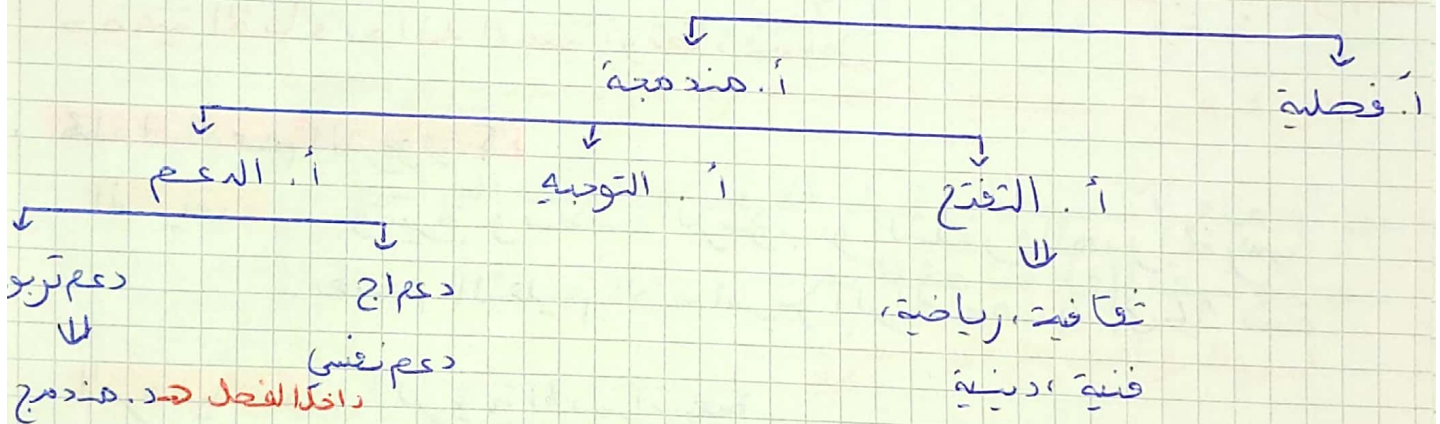 أ. فصلية
أ. مندمجة
أ. التفتح
أ. التوجيه
أ. الدعم
ثقافية، رياضية،
فنية، دينية
دعم اج
دعم نفسي
دعم تربو
داخل الفصل د. مندمج